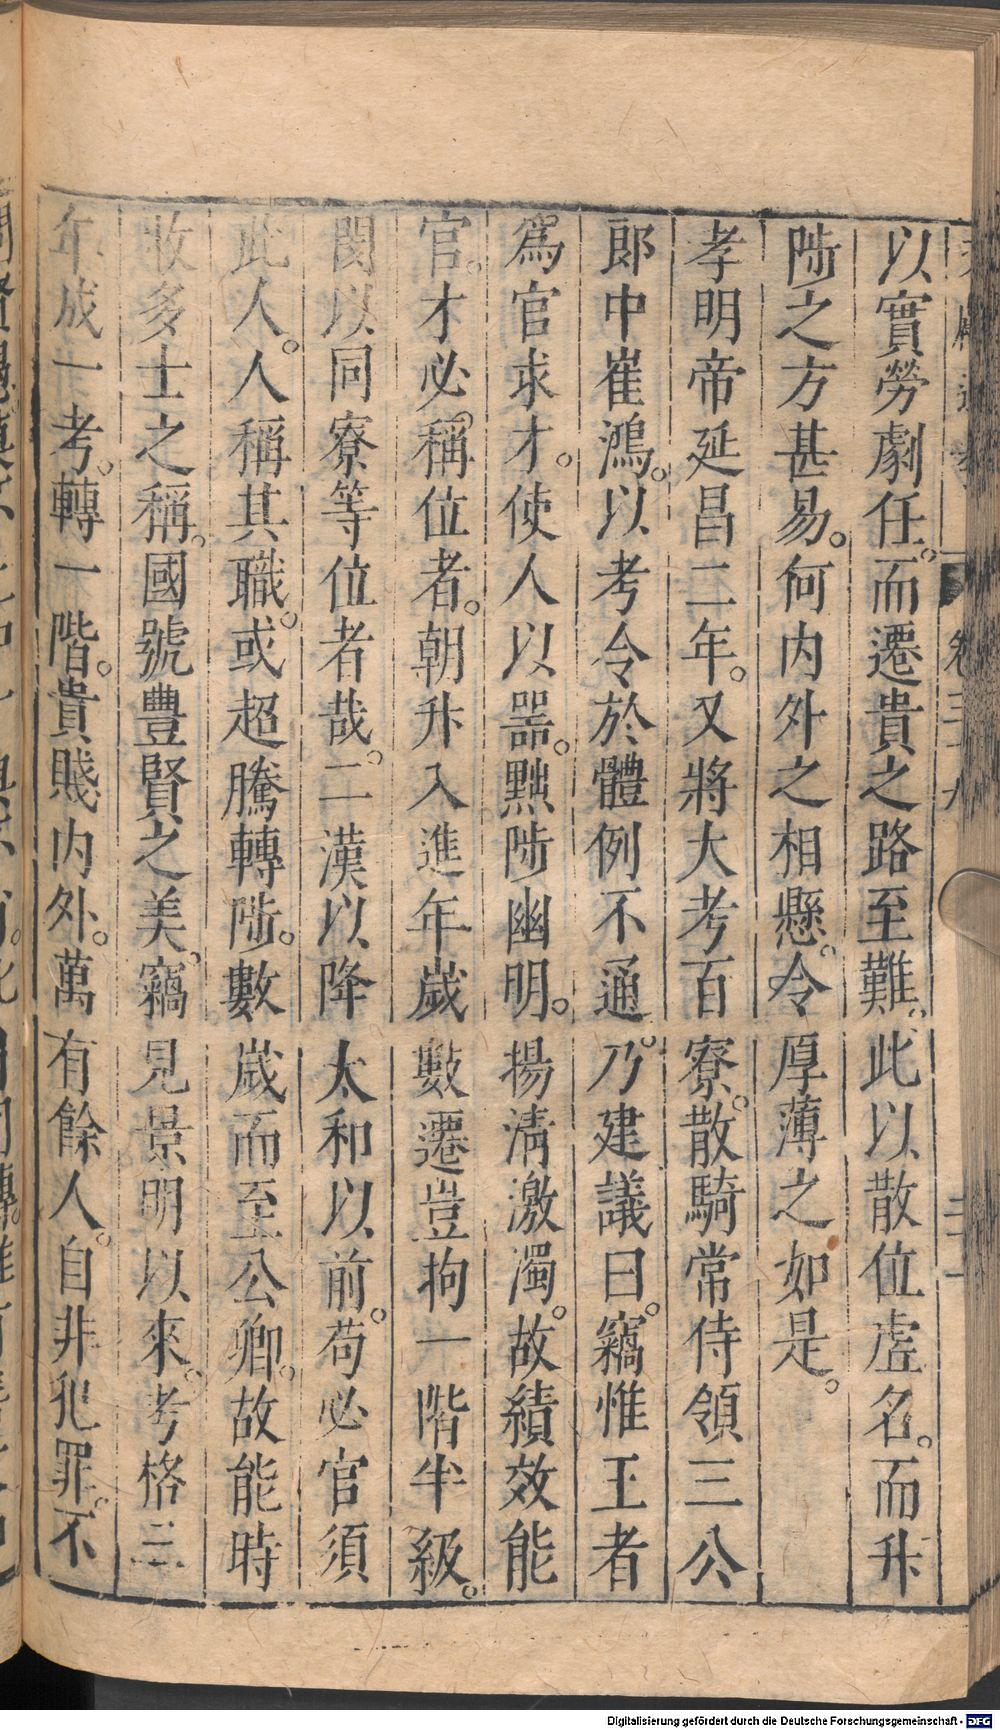 以實勞劇任。而遷貴之路至難。此以散位虛名。而升
陟之方甚易。何内外之相懸。令厚薄之如是。
孝明帝延昌二年。又將大考百寮。散騎常侍領三公
郎中崔鴻。以考令於體例不通。乃建議曰。竊惟王者
爲官求才。使人以器。黜陟幽明。揚淸激濁。故績效能
官。才必稱位者。朝升入進年歲數遷豈拘一階半級。
閡以同寮等位者哉。二漢以降太和以前。苟必官須
此人。人稱其職。或超騰轉陟。數歲而至公卿。故能時
收多士之稱。國號豐賢之美。竊見景明以來。考格三
年成一考。轉一階。貴賤内外。萬有餘人。自非犯罪。不
Digitalisierung gefördert durch die Deutsche Forschungsgemeinschaft - DFG